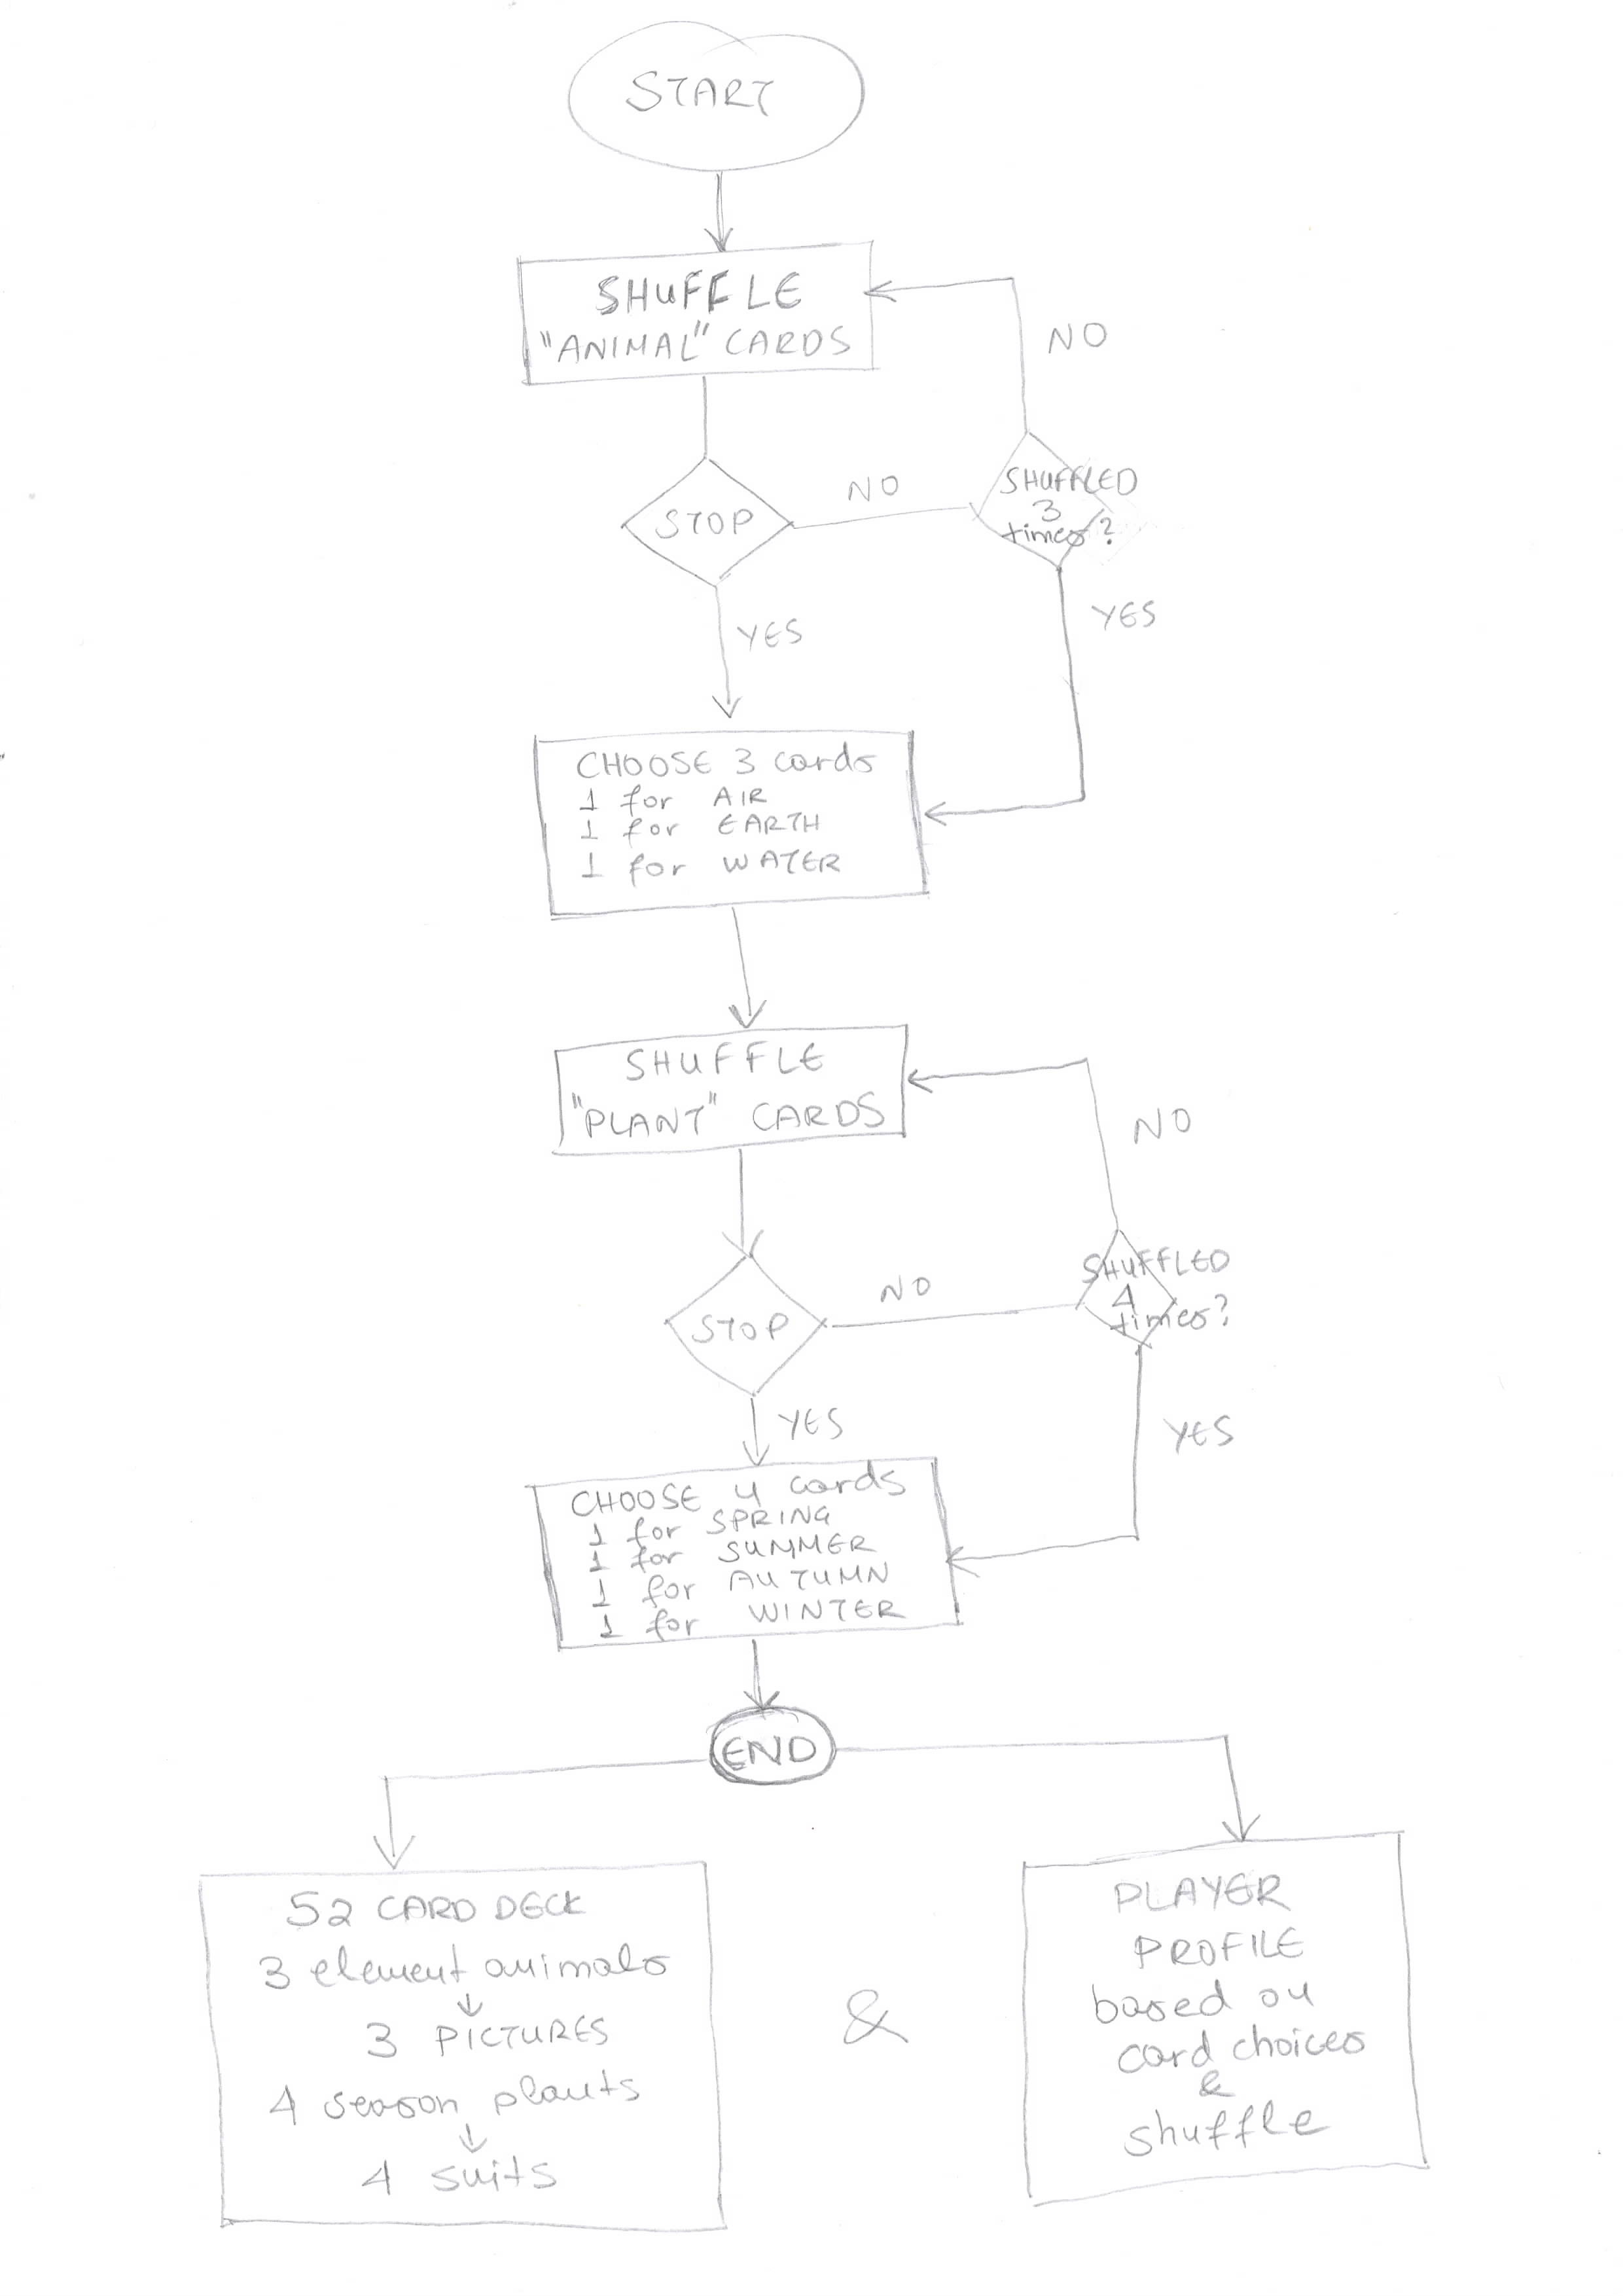 START
SHUFFLE
"ANIMAL" CARDS
NO
SHUFFLED
3
times?
NO
STOP
YES
YES
CHOOSE 3 cards
1 for AIR
1 for EARTH
1 for WATER
SHUFFLE
"PLANT" CARDS
NO
SHUFFLED
4
times?
NO
STOP
YES
YES
CHOOSE 4 cards
1 for SPRING
1 for SUMMER
1 for AUTUMN
1 for WINTER
END
52 CARD DECK
3 element animals
↓
3 PICTURES
4 season plants
↓
4 suits
&
PLAYER
PROFILE
based on
card choices
&
shuffle